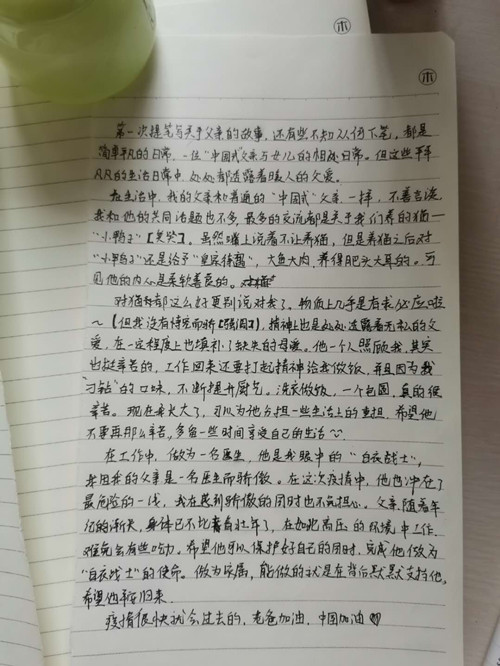 木
木
第一次提笔写关于父亲的故事，还有些不知从何下笔。都是
简单平凡的日常，一位“中国式”父亲与女儿的相处日常。但这些平平
凡凡的生活日常中，处处都透露着暖人的父爱。
在生活中，我的父亲和普通的“中国式”父亲一样，不善言谈
我和他的共同话题也不多，最多的交流都是关于我们养的猫一
“小鸭子”[笑哭]。虽然嘴上说着不让养猫，但是养猫之后对
“小鸭子”还是给予“皇家待遇”，大鱼大肉，养得肥头大耳的。可
见他的内心是柔软善良的。
对猫都这么好更别说对我了。物质上几乎是有求必应啦
~（但我没有恃宠而骄[强调]），精神上也是处处透露着无私的父
爱，在一定程度上也填补了缺失的母爱。他一个人照顾我，其实
也挺辛苦的，工作回来还要打起精神给我做饭，并且因为我
“刁钻”的口味，不断提升厨艺。洗衣做饭，一个包圆，真的很
辛苦。现在我长大了，可以为他分担一些生活上的重担，希望他
不要再那么辛苦，多留一些时间享受自己的生活~
在工作中，做为一名医生，他是我眼中的“白衣战士”，
我因我的父亲是一名医生而骄傲。在这次疫情中，他也冲在了
最危险的一线，我在感到骄傲的同时也不免担心。父亲随着年
纪的渐长，身体已不比青春壮年了，在如此高压的环境中工作，
难免会有些吃力。希望他可以保护好自己的同时，完成他做为
“白衣战士”的使命。做为家属，能做的就是在背后默默支持他，
希望他平安归来
疫情很快就会过去的，老爸加油，中国加油♡